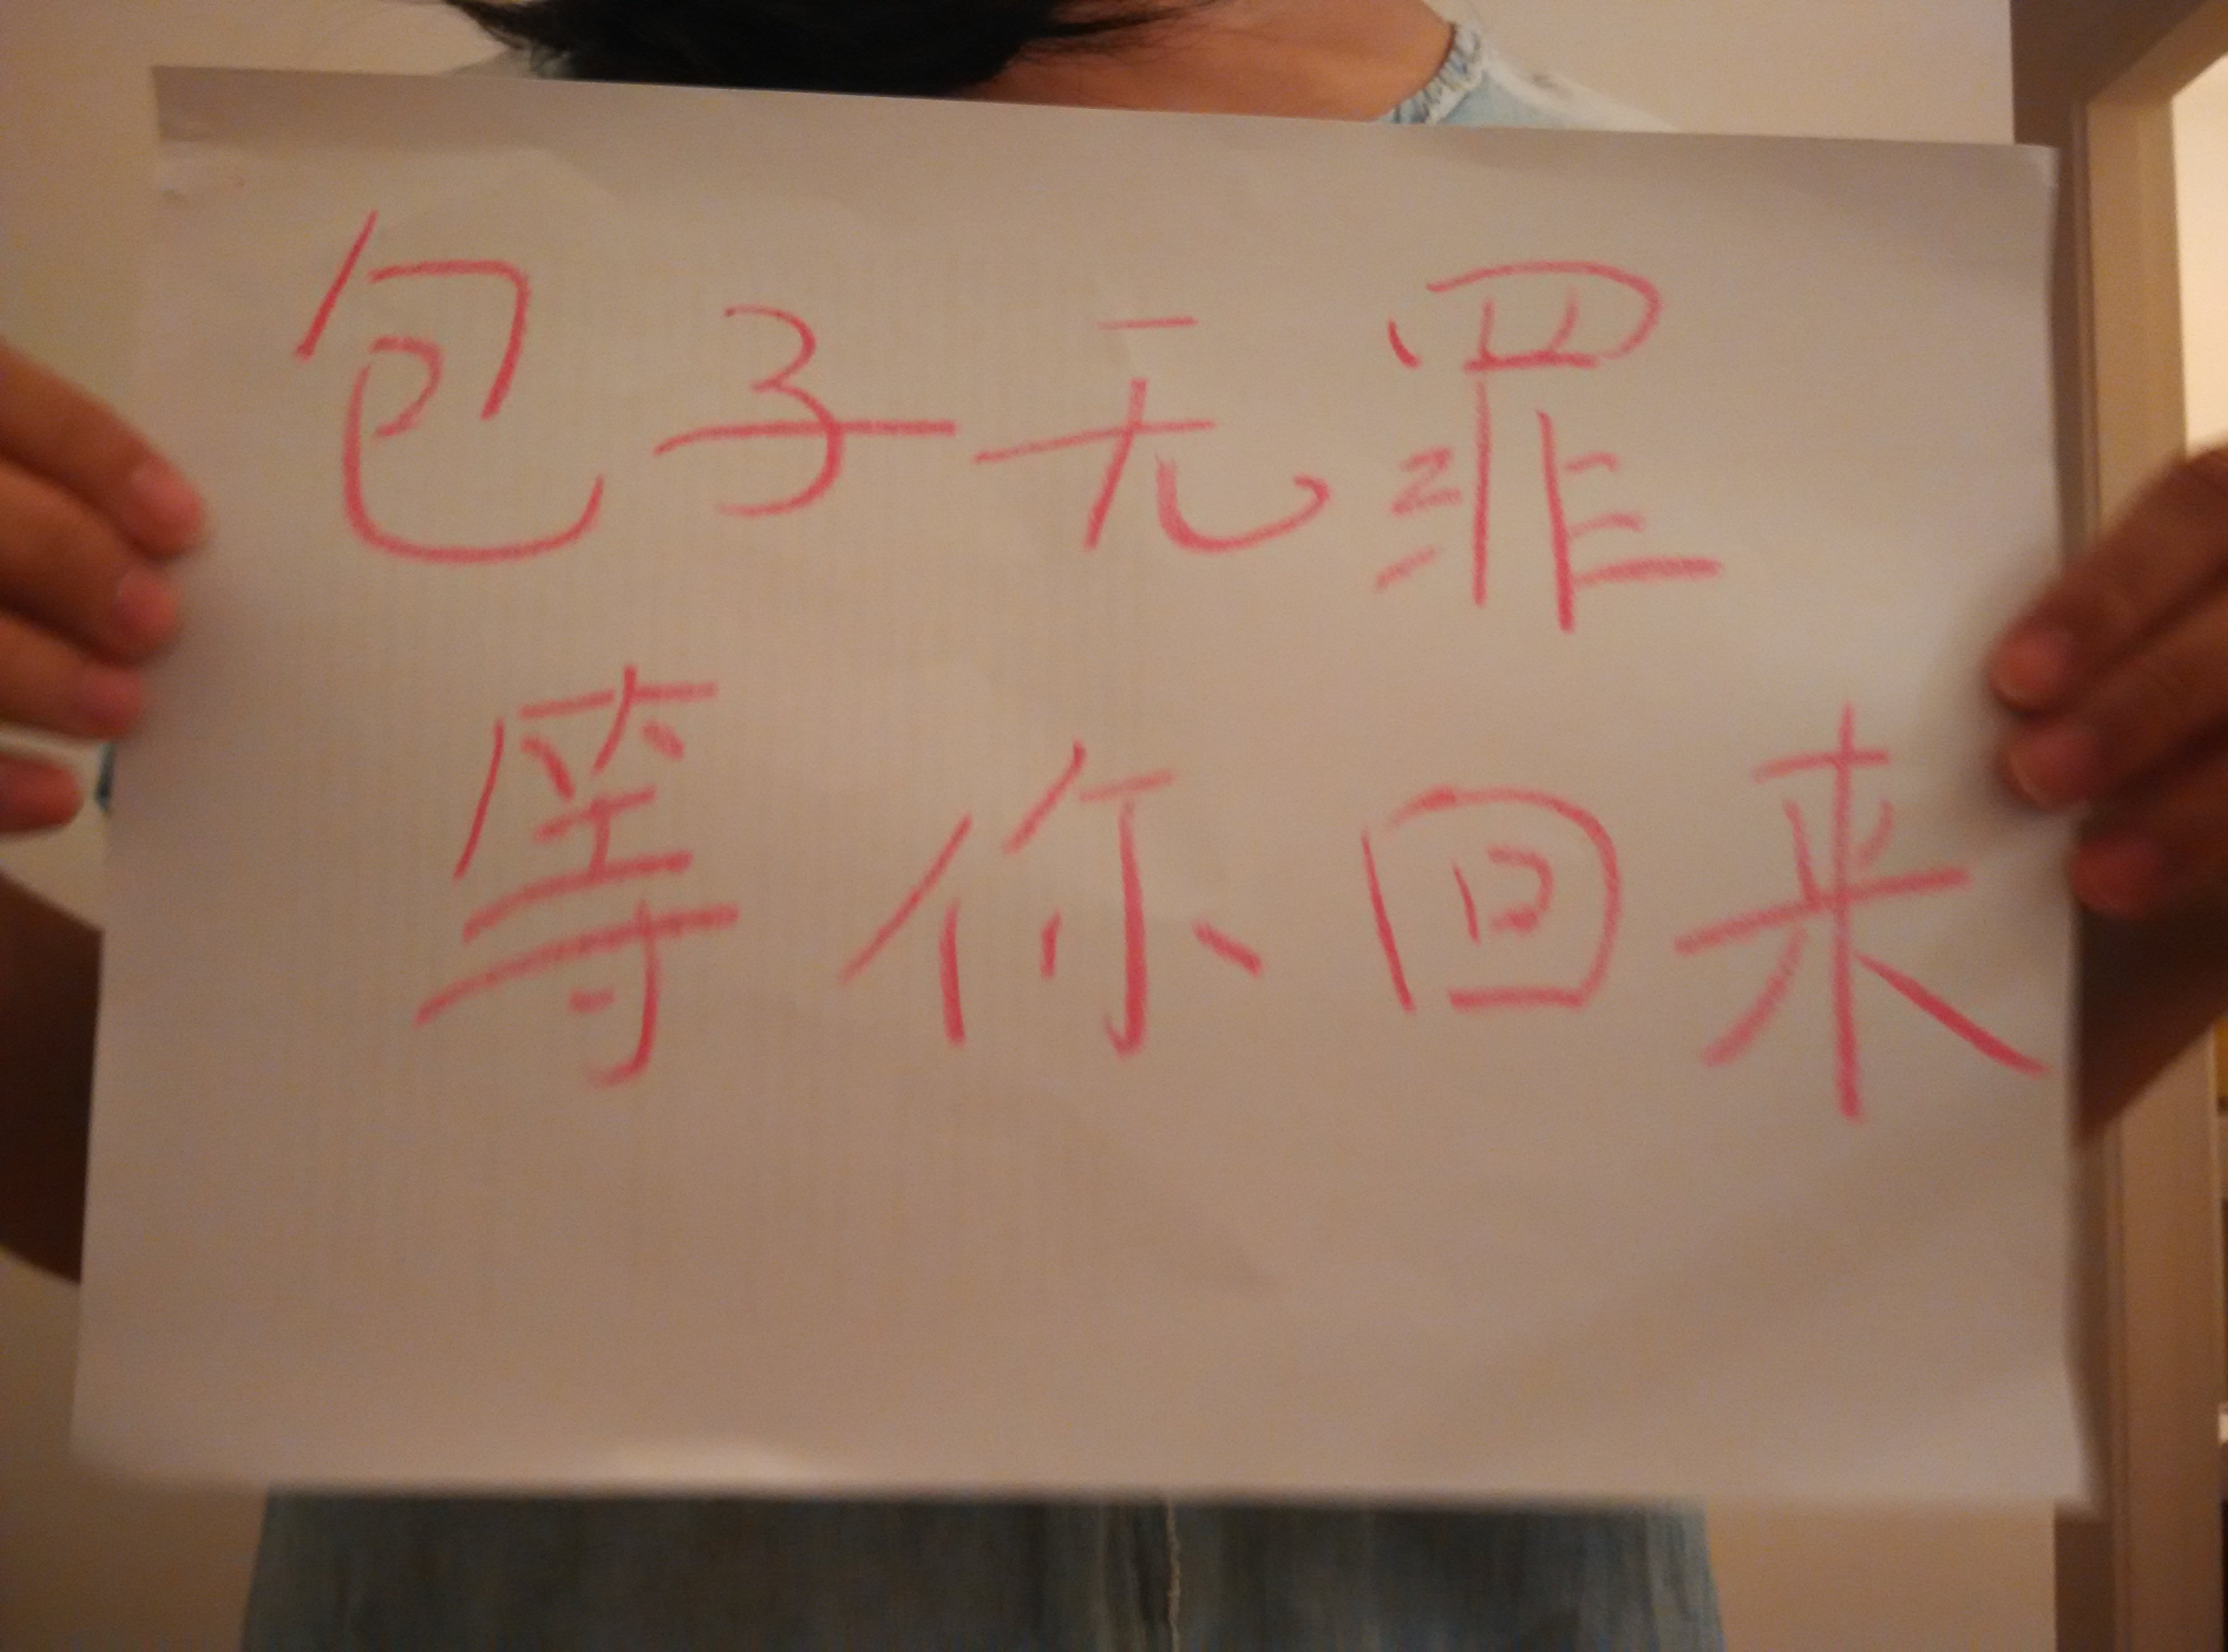 包子无罪
等你回来